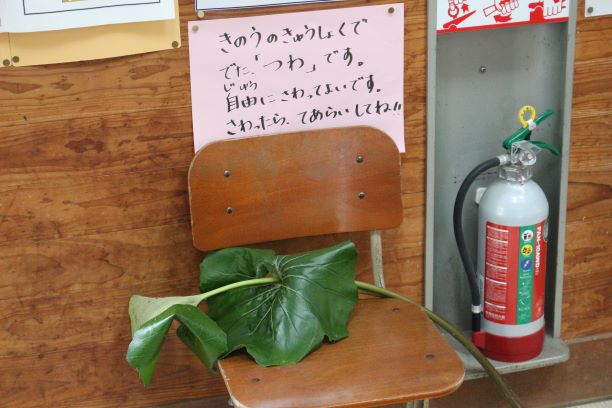 きのうのきゅうしょくで
でた.「つわ」です。
じゆう
自由にさわってよいです。
さわったら、てあらいしてね!!